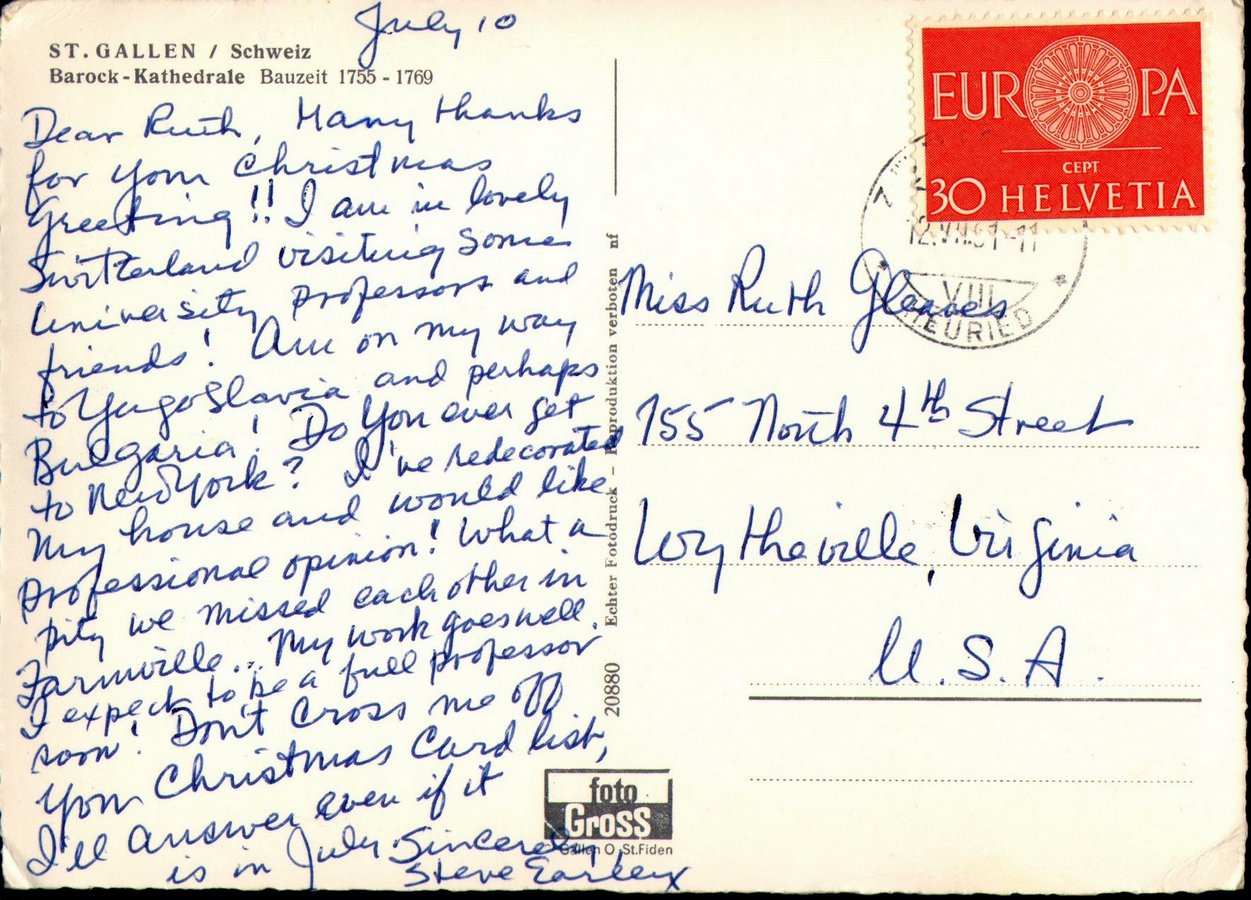 July 10
ST. GALLEN / Schweiz
Barock-Kathedrale Bauzeit 1755 - 1769
Dear Ruth, Many thanks
for your Christmas
Greeting!! I am in lovely
Switzerland visiting some
University professors and
friends! Am on my way
to Yugoslavia and perhaps
Bulgaria! Do you ever get
to New York? I've redecorated
my house and would like
professional opinion! What a
pity we missed each other in
Farmville... My work goes well.
I expect to be a full professor
soon! Don't cross me off
your Christmas Card list,
I'll answer even if it
is in July. Sincerely,
Steve
20880 Echter Fotodruck - Reproduktion verboten nf
foto
Gross
Gallen O St.Fiden
EUROPA
CEPT
30 HELVETIA
12.VII.61-11
VIII
HEURIED
Miss Ruth Gleaves
755 North 4th Street
Wytheville, Virginia
U.S.A.